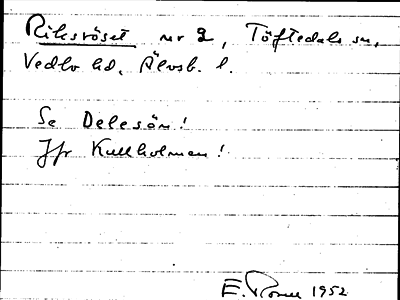 Riksröset nr 2, Töftedals sn,
Vedbo hd, Älvsb. l.
Se Delesön!
Jfr Kullholmen!
E. 1952